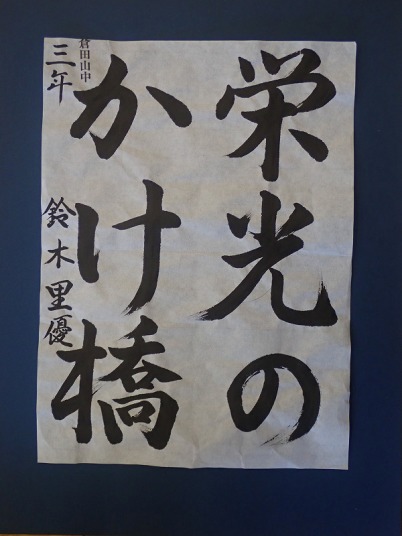 栄光の
かけ橋
倉田山中
三年 鈴木里優